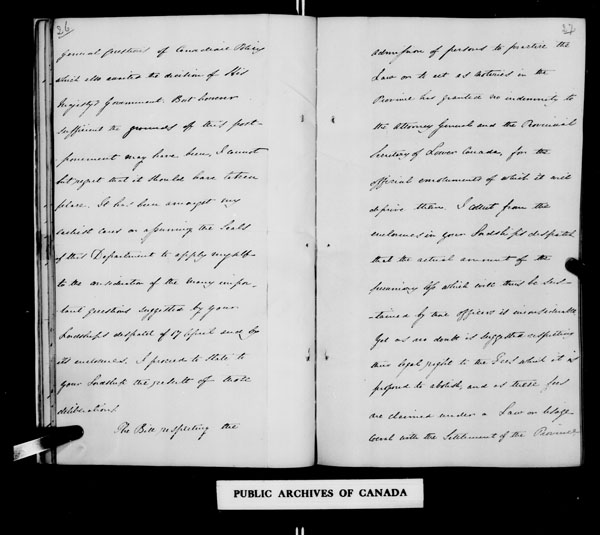 36
general questions of Canadian Policy
which also awaited the decision of His
Majesty's Government. But however
sufficient the grounds of this post-
ponement may have been, I cannot
but regret that it should have taken
place. It has been amongst my
earliest cares on assuming the Seals
of this Department to apply myself
to the consideration of the many impor-
tant questions suggested by your
Lordship's despatch of 17 April and by
its enclosures. I proceed to state to
your Lordship the result of those
deliberations.
The Bill respecting the
37
admission of persons to practice the
Law or to act as notaries in the
Province has granted no indemnity to
the Attorney General and the Provincial
Secretary of Lower Canada, for the
official emoluments of which it will
deprive them. I collect from the
enclosures in your Lordship's despatch
that the actual amount of the
pecuniary loss which will thus be sus-
-tained by those officers is inconsiderable
Yet as no doubt is suggested respecting
their legal right to the Fees which it is
proposed to abolish, and as these fees
are claimed under a Law or Usage
with the Settlement of the Province
PUBLIC ARCHIVES OF CANADA